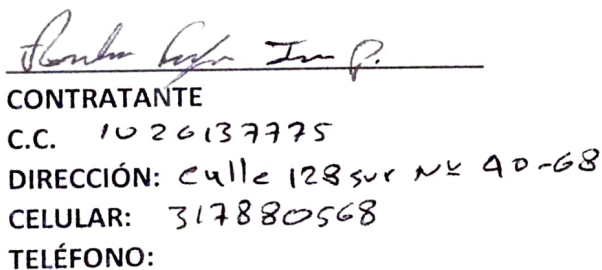 CONTRATANTE
C.C. 1026137775
DIRECCIÓN: Calle 128 sur Nº 40-68
CELULAR: 317880568
TELÉFONO: